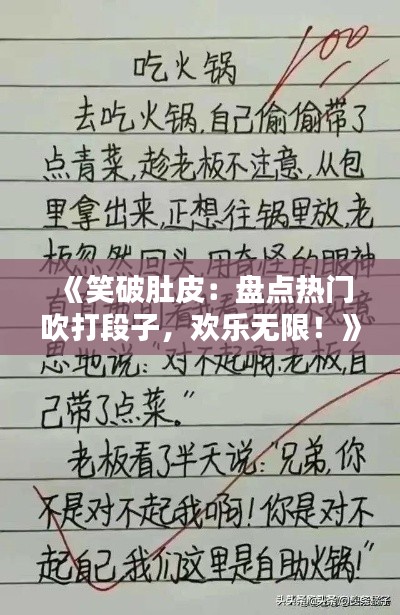 100
吃火锅
去吃火锅,自己偷偷带了
点青菜,趁老板不注意,从包
里拿出来,正想往锅里放,老
板忽然回头,用奇怪的眼神
《笑破肚皮：盘点热门
吹打段子，欢乐无限！》
思地说:"对不起啊老板,自
己带了点菜。"
老板看了半天说:"兄弟,你
不是对不起我啊!你是对不
起自己,我们这里是自助火锅!"
头条